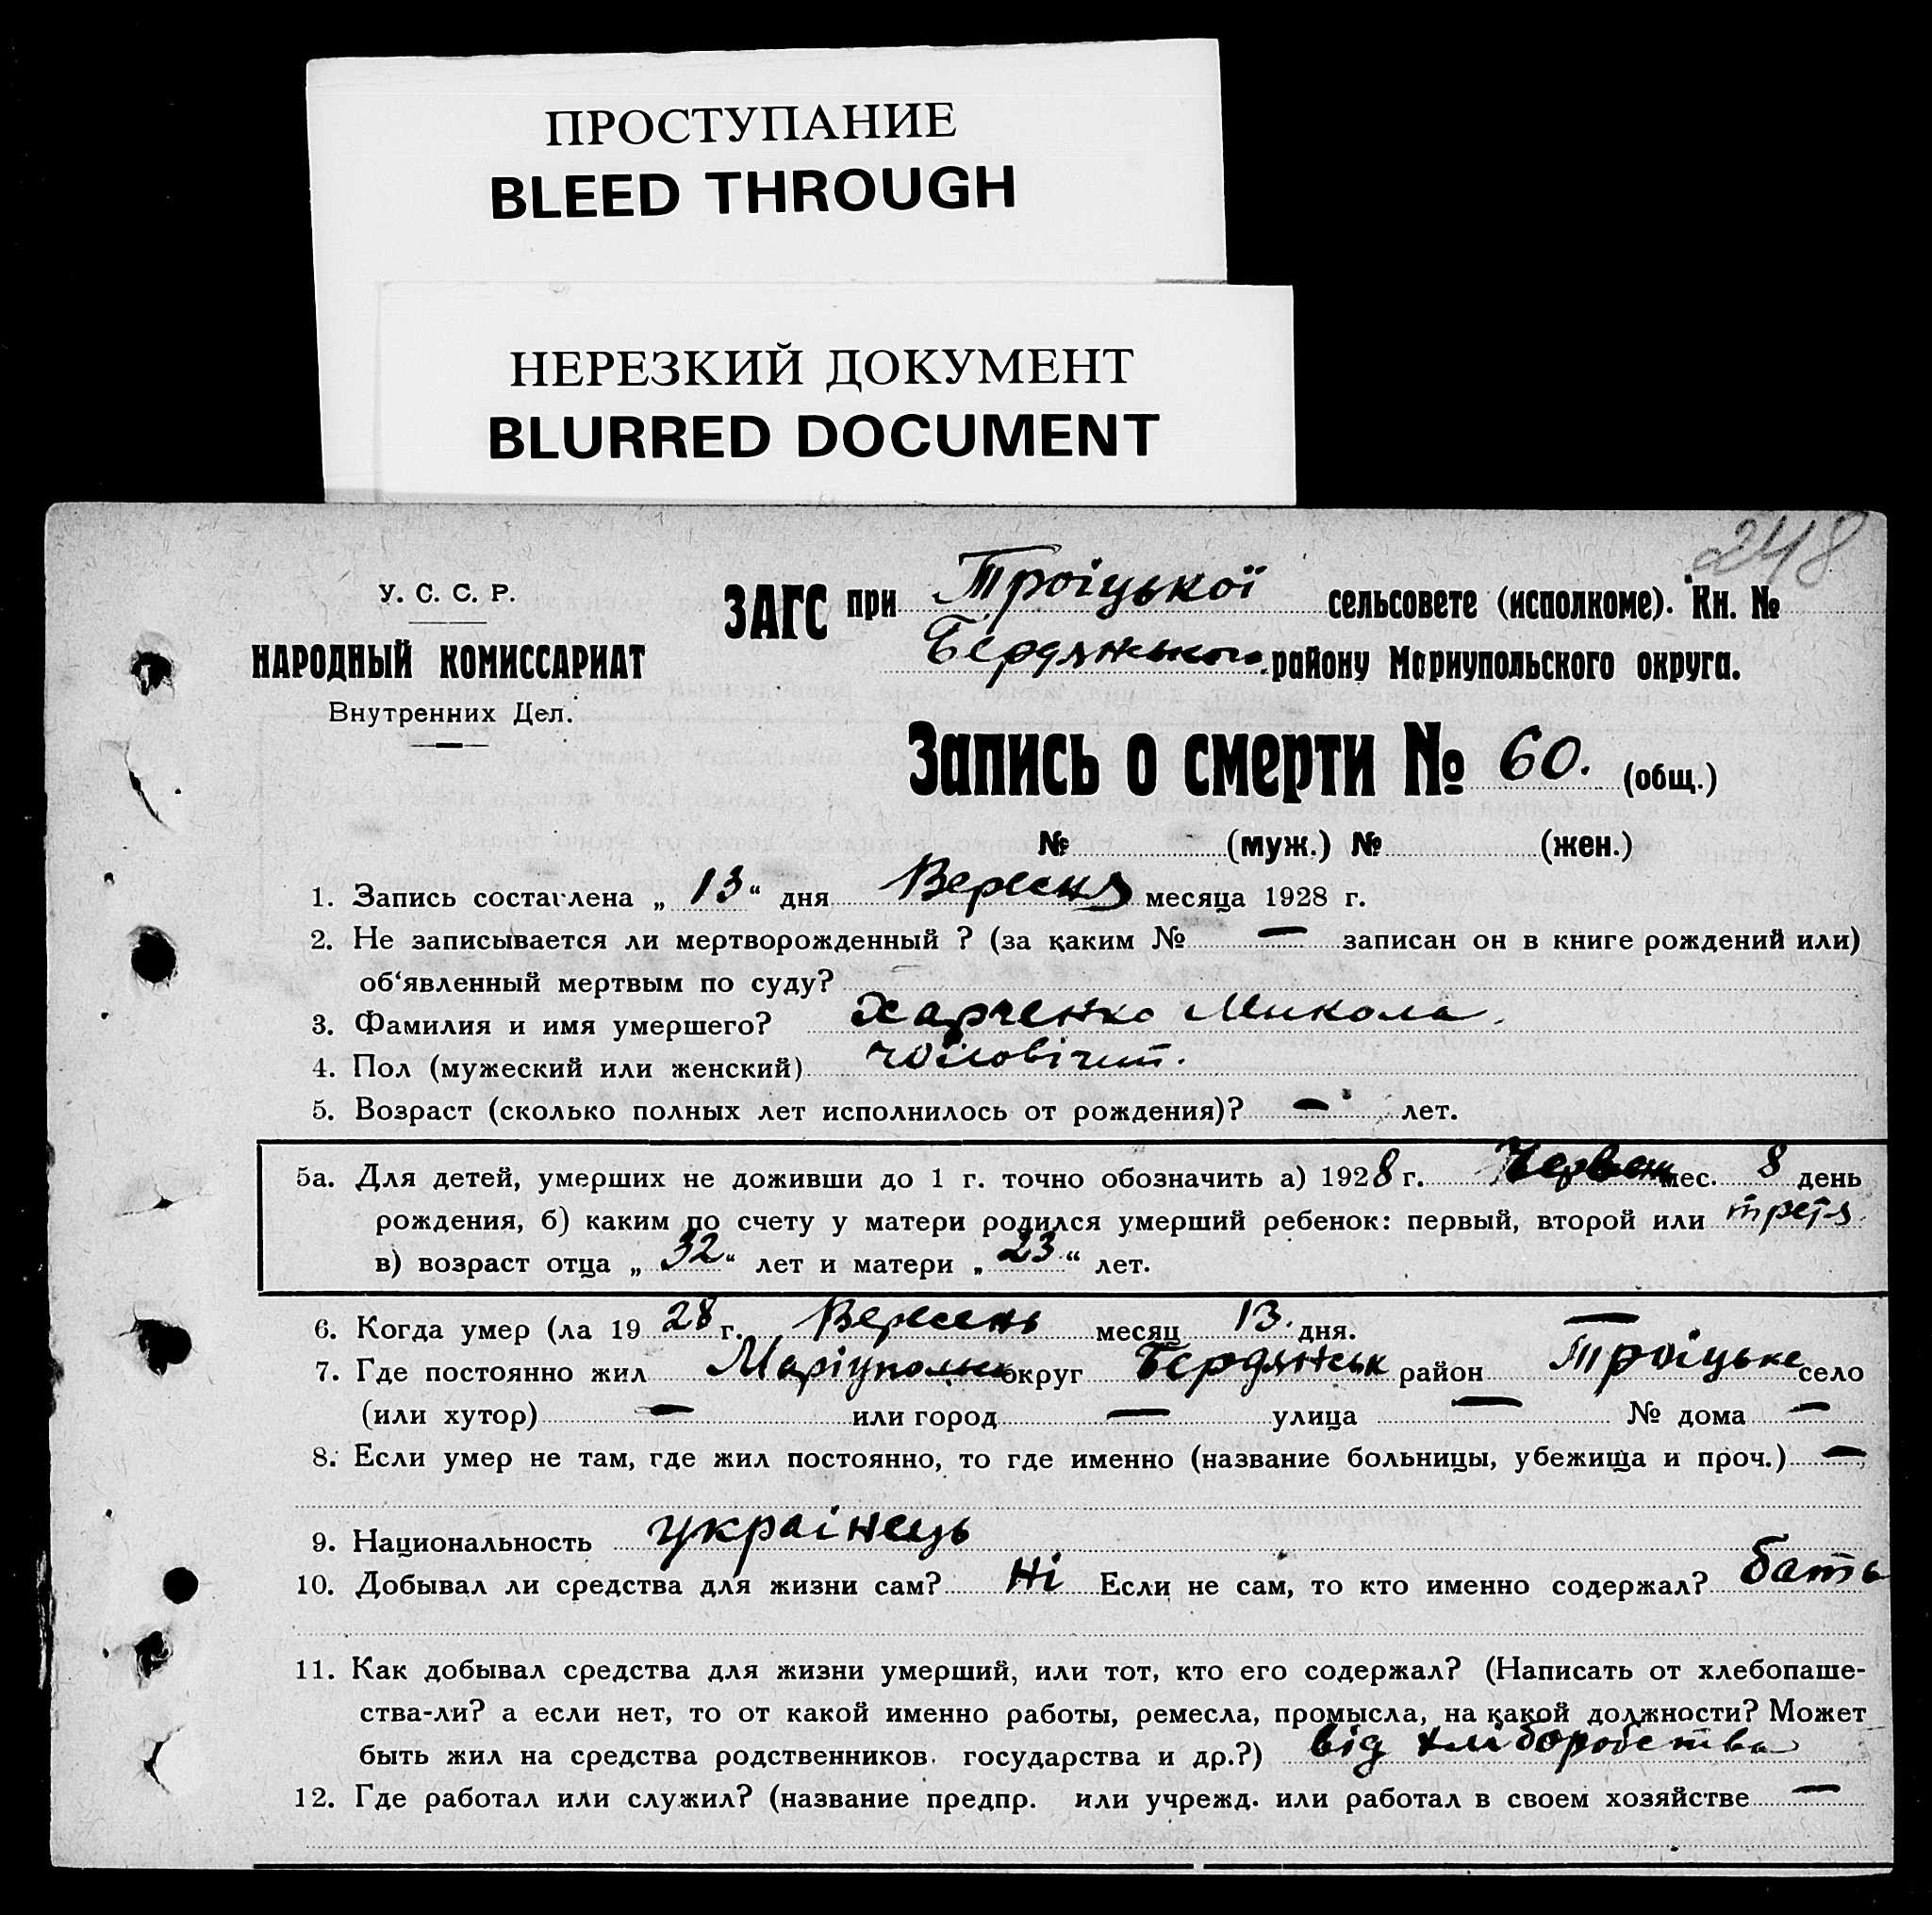 ПРОСТУПАНИЕ
BLEED THROUGH
НЕРЕЗКИЙ ДОКУМЕНТ
BLURRED DOCUMENT
248
У. С. С. Р.
НАРОДНЫЙ КОМИССАРИАТ
Внутренних Дел.
ЗАГС при Троіцької сельсовете (исполкоме). Кн. №
Бердянського району Мариупольского округа.
Запись о смерти № 60. (общ.)
№ (муж.) № (жен.)
1. Запись составлена „ 13 “ дня Вересня месяца 1928 г.
2. Не записывается ли мертворожденный ? (за каким № — записан он в книге рождений или)
об‘явленный мертвым по суду?
3. Фамилия и имя умершего? Харченко Микола.
4. Пол (мужеский или женский)
5. Возраст (сколько полных лет исполнилось от рождения)? — лет.
5а. Для детей, умерших не доживши до 1 г. точно обозначить а) 1928 г. Червень мес. 8 день
рождения, б) каким по счету у матери родился умерший ребенок: первый, второй или третя
в) возраст отца „ 32 “ лет и матери „ 23 “ лет.
6. Когда умер (ла 19 28 г. Вересень месяц 13. дня.
7. Где постоянно жил Маріупольск округ Бердянськ район Троіцьке село
(или хутор) — или город — улица — № дома —
8. Если умер не там, где жил постоянно, то где именно (название больницы, убежища и проч.) —
9. Национальность українець
10. Добывал ли средства для жизни сам? Ні Если не сам, то кто именно содержал? бать
11. Как добывал средства для жизни умерший, или тот, кто его содержал? (Написать от хлебопаше-
ства-ли? а если нет, то от какой именно работы, ремесла, промысла, на какой должности? Может
быть жил на средства родственников. государства и др.?) від хліборобства
12. Где работал или служил? (название предпр. или учрежд. или работал в своем хозяйстве —